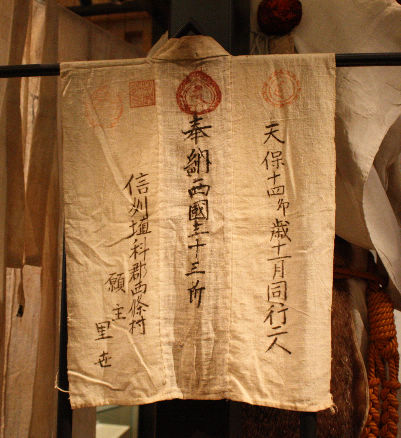 天保十四卯歳十一月同行二人
奉納西國三十三所
信州埴科郡西條村
願主
里世